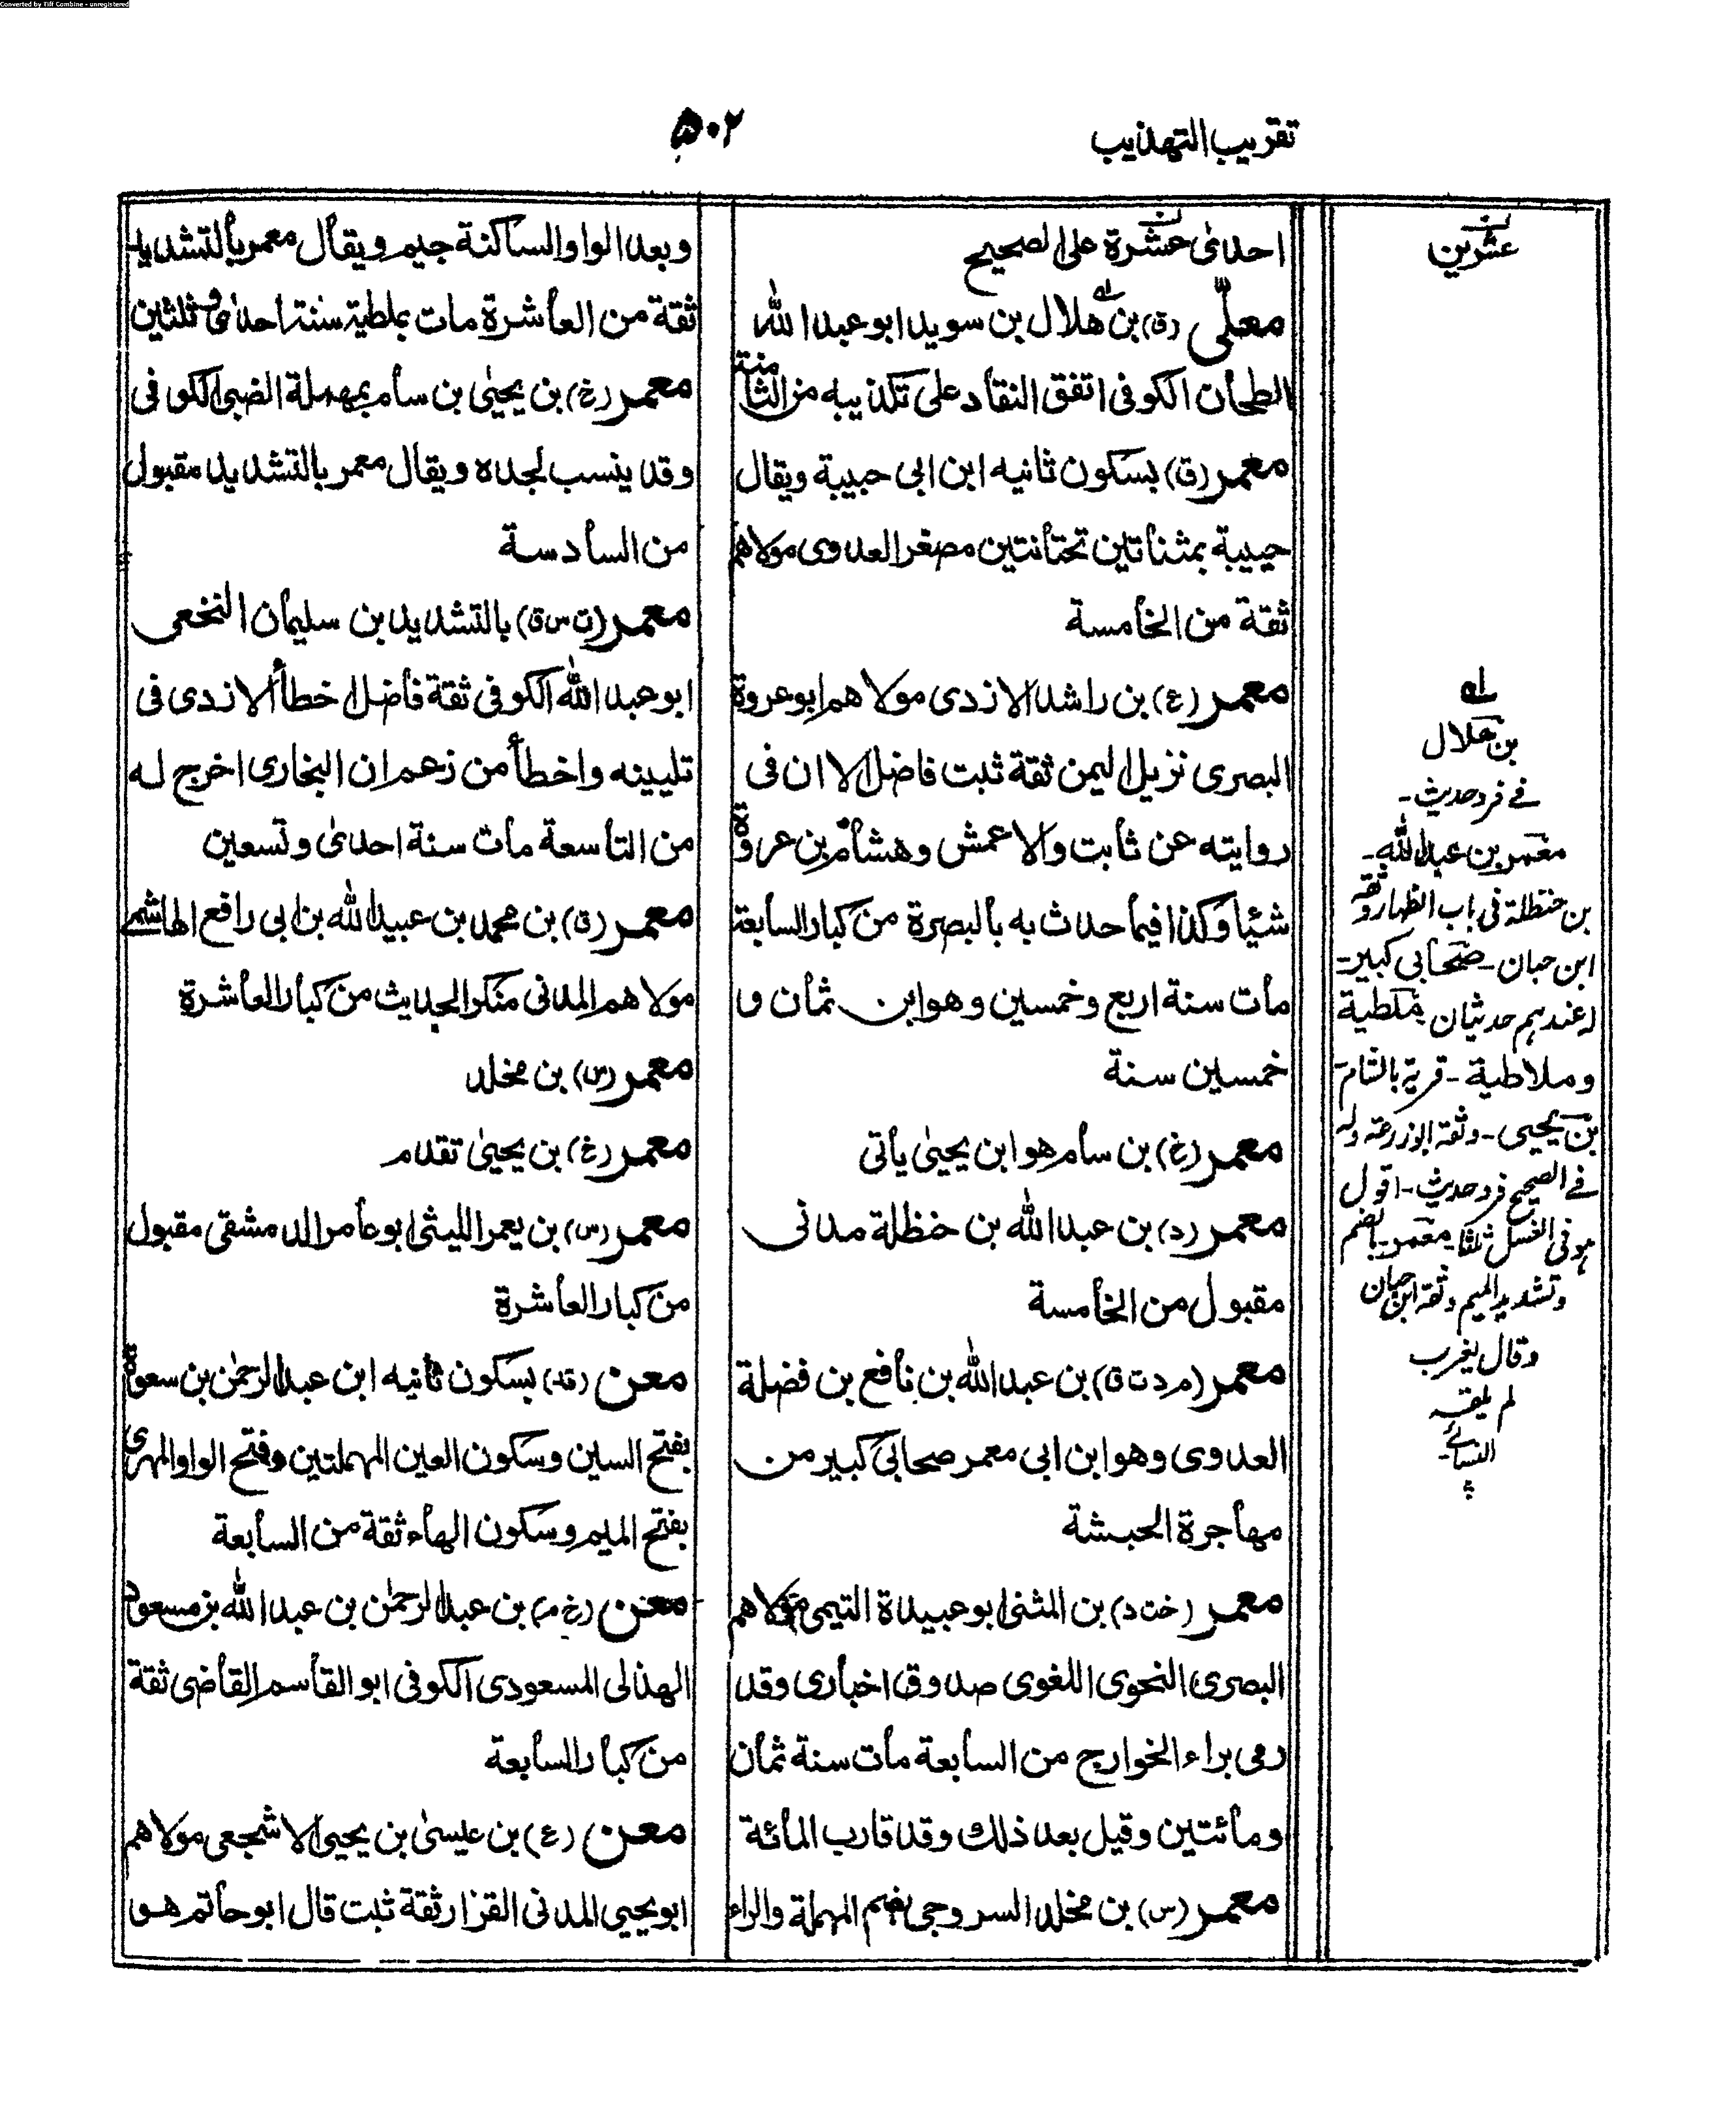 Converted by Tiff Combine - unregistered
تقريب التهذيب
۵۰۲
احدىٰ عشرة على الصحيح
معلّى (ق) بن هلال بن سويد ابو عبد الله
الطحان الكوفى اتفق النقاد على تكذيبه من الثامنة
معمر (ق) بسكون ثانيه ابن ابى حبيبة ويقال
حييبة بمثناتين تحتانتين مصغر العدوى مولاهم
ثقة من الخامسة
معمر (ع) بن راشد الازدى مولاهم ابو عروة
البصرى نزيل اليمن ثقة ثبت فاضل الا ان فى
روايته عن ثابت والاعمش وهشام بن عروة
شيأ وكذا فيما حدث به بالبصرة من كبار السابعة
مات سنة اربع وخمسين وهو ابن ثمان و
خمسين سنة
معمر (غ) بن سام هو ابن يحيىٰ يأتى
معمر (د) بن عبد الله بن حنظلة مدنى
مقبول من الخامسة
معمر (م د ت ق) بن عبد الله بن نافع بن فضلة
العدوى وهو ابن ابى معمر صحابى كبير من
مهاجرة الحبشة
معمر (خت د) بن المثنى ابو عبيدة التيمى مولاهم
البصرى النحوى اللغوى صدوق اخبارى وقد
رمى براء الخوارج من السابعة مات سنة ثمان
ومائتين وقيل بعد ذلك وقد قارب المائة
معمر (س) بن مخلد السروجى بضم المهملة والراء
وبعد الواو الساكنة جيم ويقال معمر بالتشديد
ثقة من العاشرة مات بملطية سنة احدىٰ وثلثين
معمر (غ) بن يحيىٰ بن سام بمهملة الضبى الكوفى
وقد ينسب لجده ويقال معمر بالتشديد مقبول
من السادسة
معمر (ت س ق) بالتشديد بن سليمان النخعى
ابو عبد الله الكوفى ثقة فاضل اخطأ الازدى فى
تليينه واخطأ من زعم ان البخارى اخرج له
من التاسعة مات سنة احدىٰ وتسعين
معمر (ق) بن محمد بن عبيد الله بن ابى رافع الهاشمى
مولاهم المدنى منكر الحديث من كبار العاشرة
معمر (س) بن مخلد
معمر (غ) بن يحيىٰ تقدم
معمر (س) بن يعمر الليثى ابو عامر الدمشقى مقبول
من كبار العاشرة
معن (قد) بسكون ثانيه ابن عبد الرحمٰن بن سعوة
بفتح السين وسكون العين المهملتين وفتح الواو المهرى
بفتح الميم وسكون الهاء ثقة من السابعة
معن (خ م) بن عبد الرحمٰن بن عبد الله بن مسعود
الهذلى المسعودى الكوفى ابو القاسم القاضى ثقة
من كبار السابعة
معن (ع) بن عيسىٰ بن يحيى الاشجعى مولاهم
ابو يحيى المدنى القزاز ثقة ثبت قال ابو حاتم هو
عشرين
بن هلال
فى فرد حديث-
معمر بن عبد الله-
بن حنظلة فى باب الظهار وثقه
ابن حبان- صحابى كبير-
له عندهم حديثان- بملطية
وملاطية- قرية بالشام-
بن يحيى- وثقه ابو زرعة وله
فى الصحيح فرد حديث- اقول
هو فى الغسل ثلثا- معمر- بضم
وتشديد الميم وثقه ابن حبان
وقال يغرب
لم يلقه
النسائى-